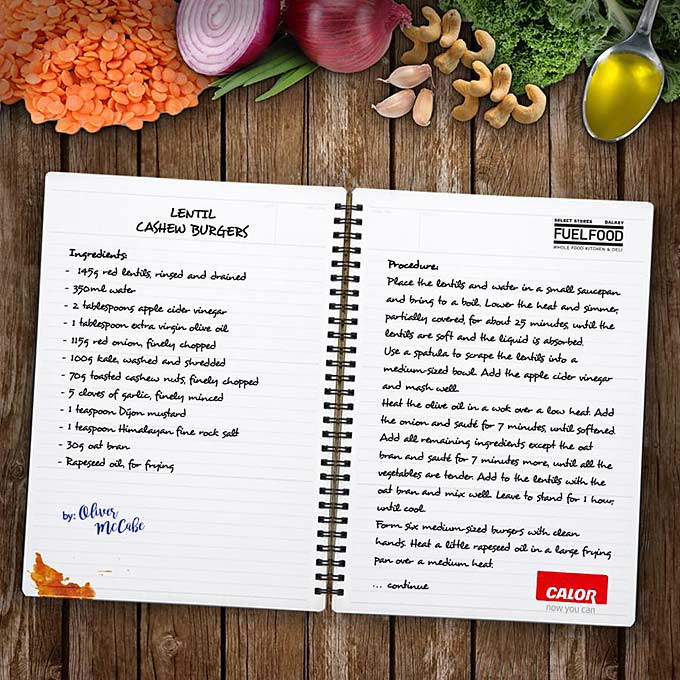 LENTIL
CASHEW BURGERS
Ingredients:
- 145g red lentils, rinsed and drained
- 350ml water
- 2 tablespoons apple cider vinegar
- 1 tablespoon extra virgin olive oil
- 115g red onion, finely chopped
- 100g kale, washed and shredded
- 70g toasted cashew nuts, finely chopped
- 5 cloves of garlic, finely minced
- 1 teaspoon Dijon mustard
- 1 teaspoon Himalayan fine rock salt
- 30g oat bran
- Rapeseed oil, for frying
by: Oliver
McCabe
SELECT STORES DALKEY
FUELFOOD
WHOLE FOOD KITCHEN & DELI
Procedure:
Place the lentils and water in a small saucepan
and bring to a boil. Lower the heat and simmer,
partially covered, for about 25 minutes, until the
lentils are soft and the liquid is absorbed.
Use a spatula to scrape the lentils into a
medium-sized bowl. Add the apple cider vinegar
and mash well.
Heat the olive oil in a wok over a low heat. Add
the onion and sauté for 7 minutes, until softened.
Add all remaining ingredients except the oat
bran and sauté for 7 minutes more, until all the
vegetables are tender. Add to the lentils with the
oat bran and mix well. Leave to stand for 1 hour,
until cool.
Form six medium-sized burgers with clean
hands. Heat a little rapeseed oil in a large frying
pan over a medium heat.
... continue
CALOR
now you can